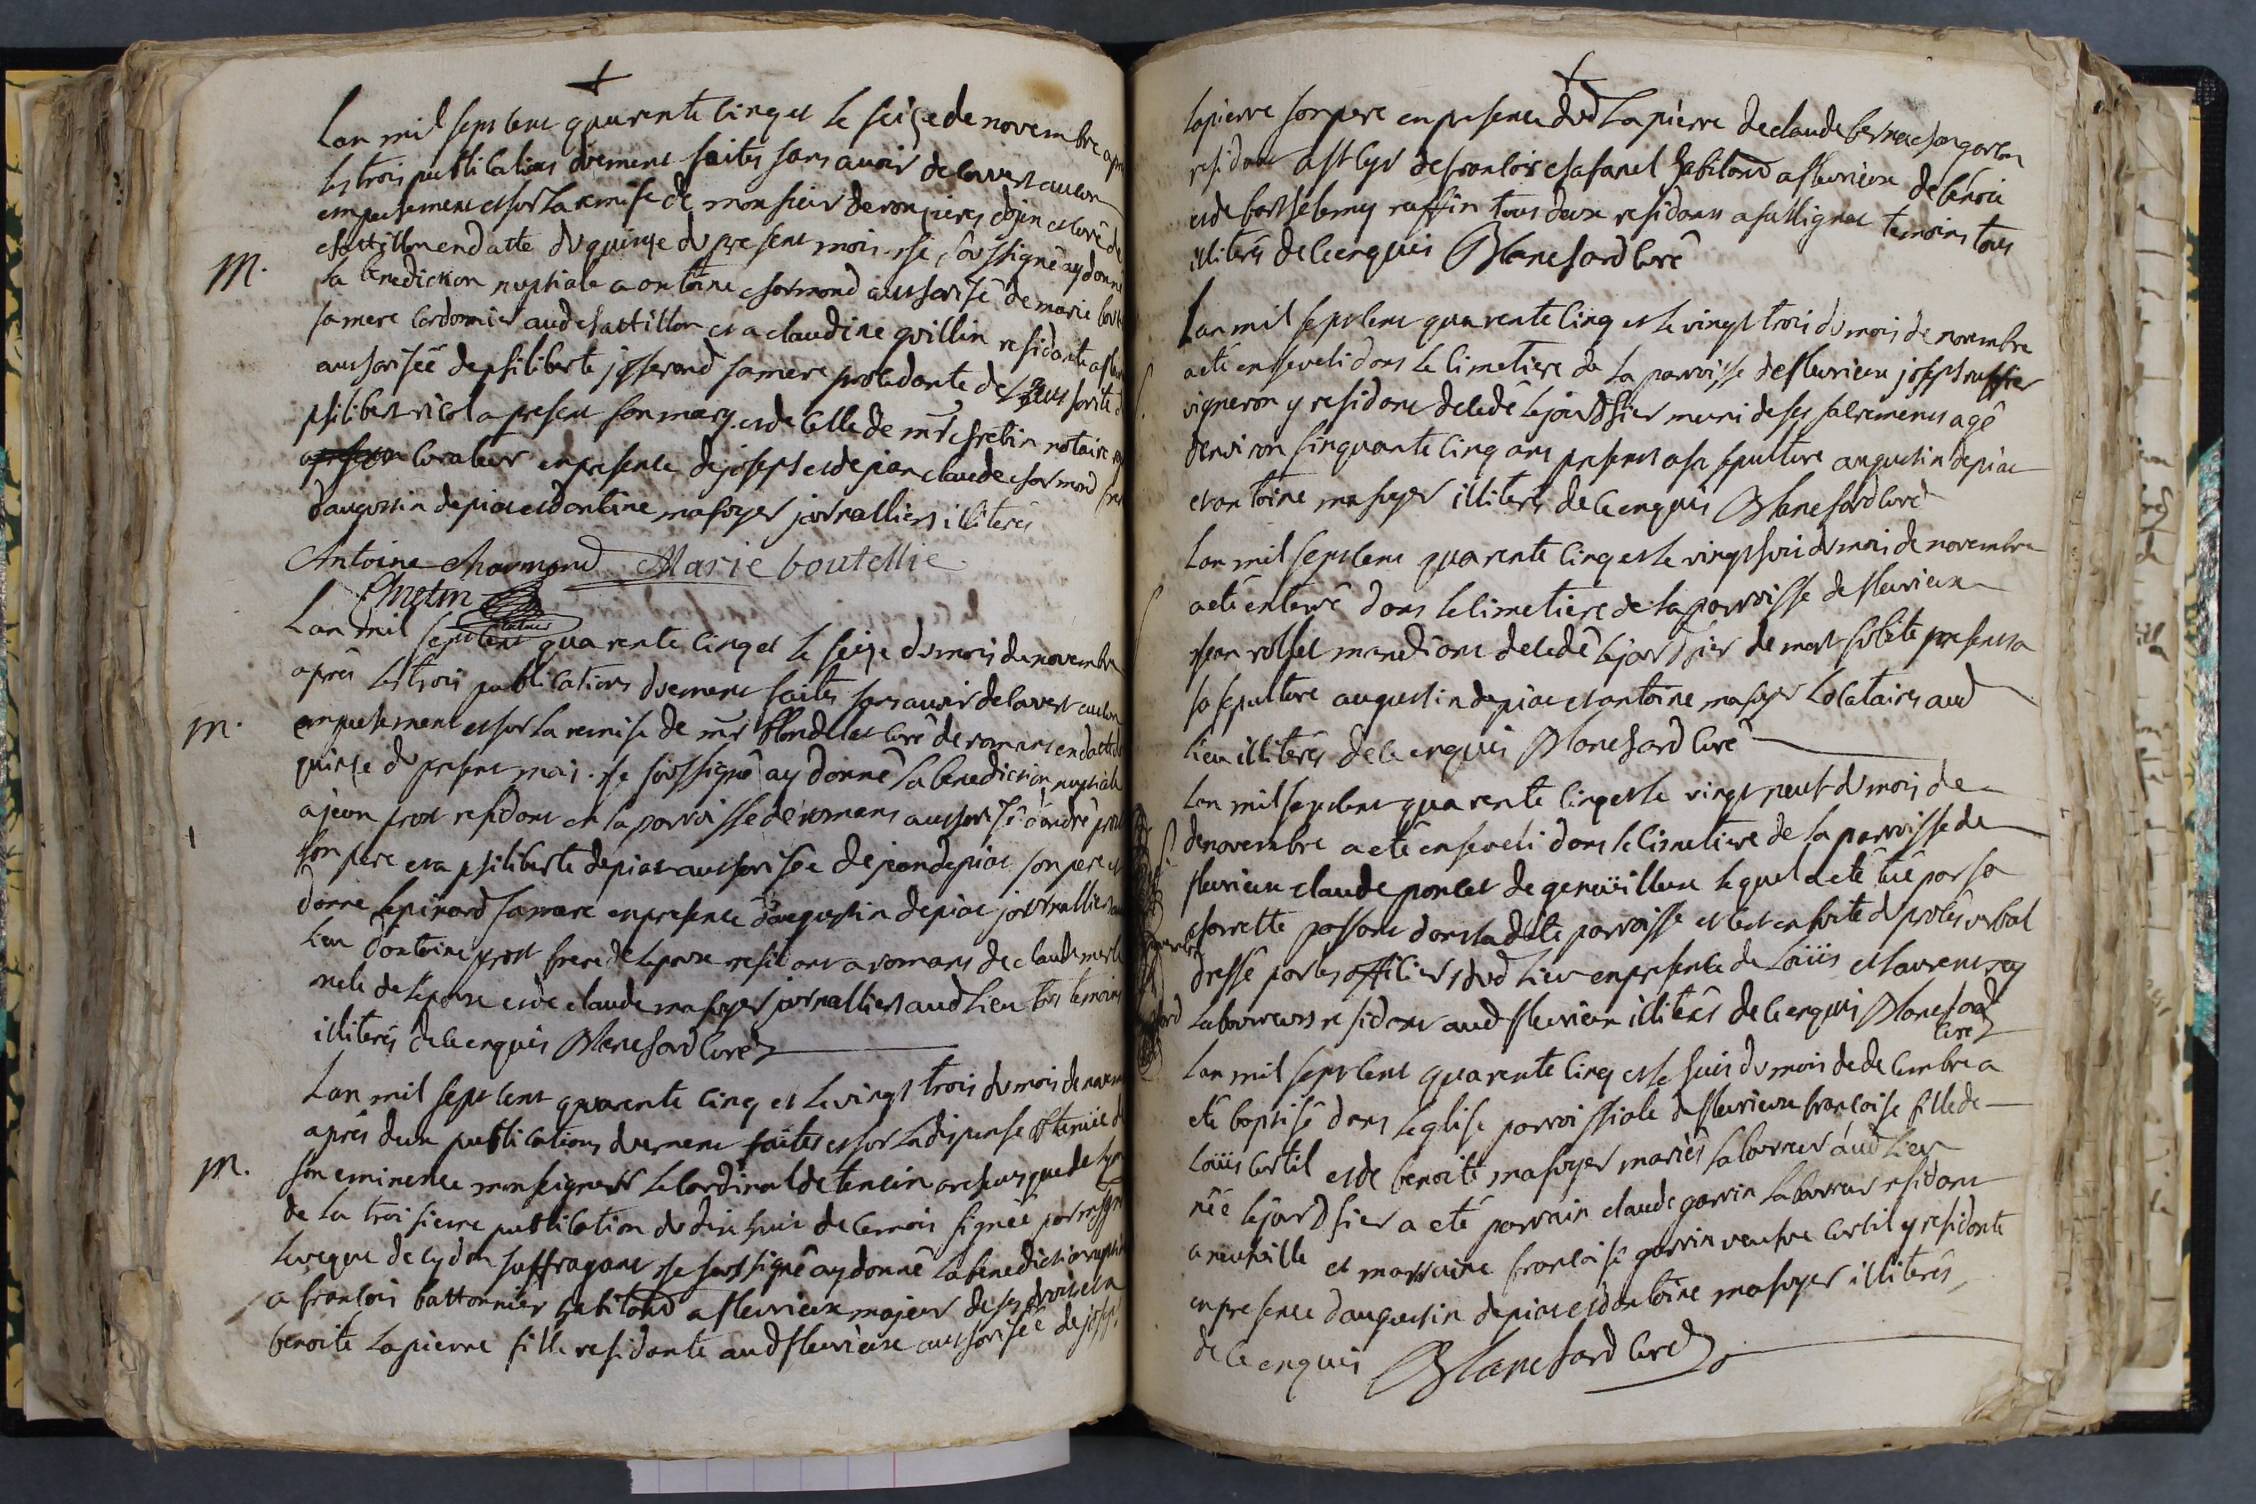 Lan mil sept cent quarente cinq et le seize de novembre apres
les trois publications duement faites sans avoir decouvert aucun
empechement et sur la remise de monsieur de ronjieres doyen et curé de
chattillon en datte du quinze du present mois. je soussigné ay donné
M.
la benediction nuptiale a antoine charmond authorisé de marie
sa mere cordonnier aud chattillon et a claudine guillin residante a
authorisée de philiberte josserand sa mere procedante de l'authorité de
philibert ricol a present son mary et de celle de mr chretin notaire
curateur en presence de joseph et de jean claude charmond
d'augustin depiac et d'antoine mahuyer journalliers illiterés
Antoine charmond Marie boutellie
Chretin
Lan mil sept cent quarente cinq et le seize du mois de novembre
après les trois publications duement faites sans avoir decouvert aucun
M.
empechement et sur la remise de mr blondel curé de romans en datte du
quinze du present mois. je soussigné ay donné la benediction nuptiale
a jean prost residant en la parroisse de romans authorisé d'andré prost
son pere et a philiberte depiac authorisée de jean depiac son pere et
danne lepinard sa mere en presence d'augustin depiac journallier au
lieu d'antoine prost frere de lepoux residant a romans de claude merle
de lepouse et de claude mahuyer journalliers aud lieu tous temoins
illiterés de ce enquis Blanchard curé
Lan mil sept cent quarente cinq et le vingt trois du mois de novembre
après deux publications duement faites et sur la dispense obtenüe de
M.
son eminence monseigneur le cardinal de tencin archeveque de lyon
de la troisieme publication du dix huit de ce mois signée par
leveque de cydon suffragant je soussigné ay donné la benediction nuptiale
a françois battonnier habitand a fleurieux majeur de ses droits et a
benoite lapierre fille residante aud fleurieux authorisée de joseph
lapierre son pere en presence dud lapierre de claude bernachon garçon
residant a st cyr de françois chafanel habitand a fleurieux de benoit
et de barthelemy ruffin tous deux residans a sullignat temoins tous
illiterés de ce enquis Blanchard curé
Lan mil sept cent quarente cinq et le vingt trois du mois de novembre
a eté enseveli dans le cimetiere de la parroisse de fleurieux joseph ruffier
vigneron y residant decedé le jour d'hier muni de ses sacremens agé
denviron cinquante cinq ans presens a sa sepulture augustin depiac
et antoine mahuyer illiterés de ce enquis Blanchard curé
Lan mil sept cent quarente cinq et le vingt huit du mois de novembre
a eté enterré dans le cimetiere de la parroisse de fleurieux
jean rollet mandiant decedé le jour d'hier de mort subite presens a
sa sepulture augustin depiac et antoine mahuyer locataires aud
lieu illiterés de ce enquis Blanchard curé
Lan mil sept cent quarente cinq et le vingt neuf du mois de
de novembre a eté enseveli dans le cimetiere de la parroisse de
fleurieux claude poncet de genoüilleux lequel a eté tué par sa
charrette passant dans ladte parroisse et cest en suite du procès verbal
dressé par les officiers dud lieu en presence de Loüis et laurent rey
laboureurs residans aud fleurieux illiterés de ce enquis Blanchard
curé
Lan mil sept cent quarente cinq et le huit du mois de decembre a
eté baptisé dans leglise parroissiale de fleurieux françoise fille de
Loüis curtil et de benoite mahuyer mariés laboureur aud lieu
née le jour d'hier a eté parrain claude garrin laboureur residant
a neuville et marraine françoise garrin veufve curtil y residante
en presence d'augustin depiac et d'antoine mahuyer illiterés
de ce enquis Blanchard curé